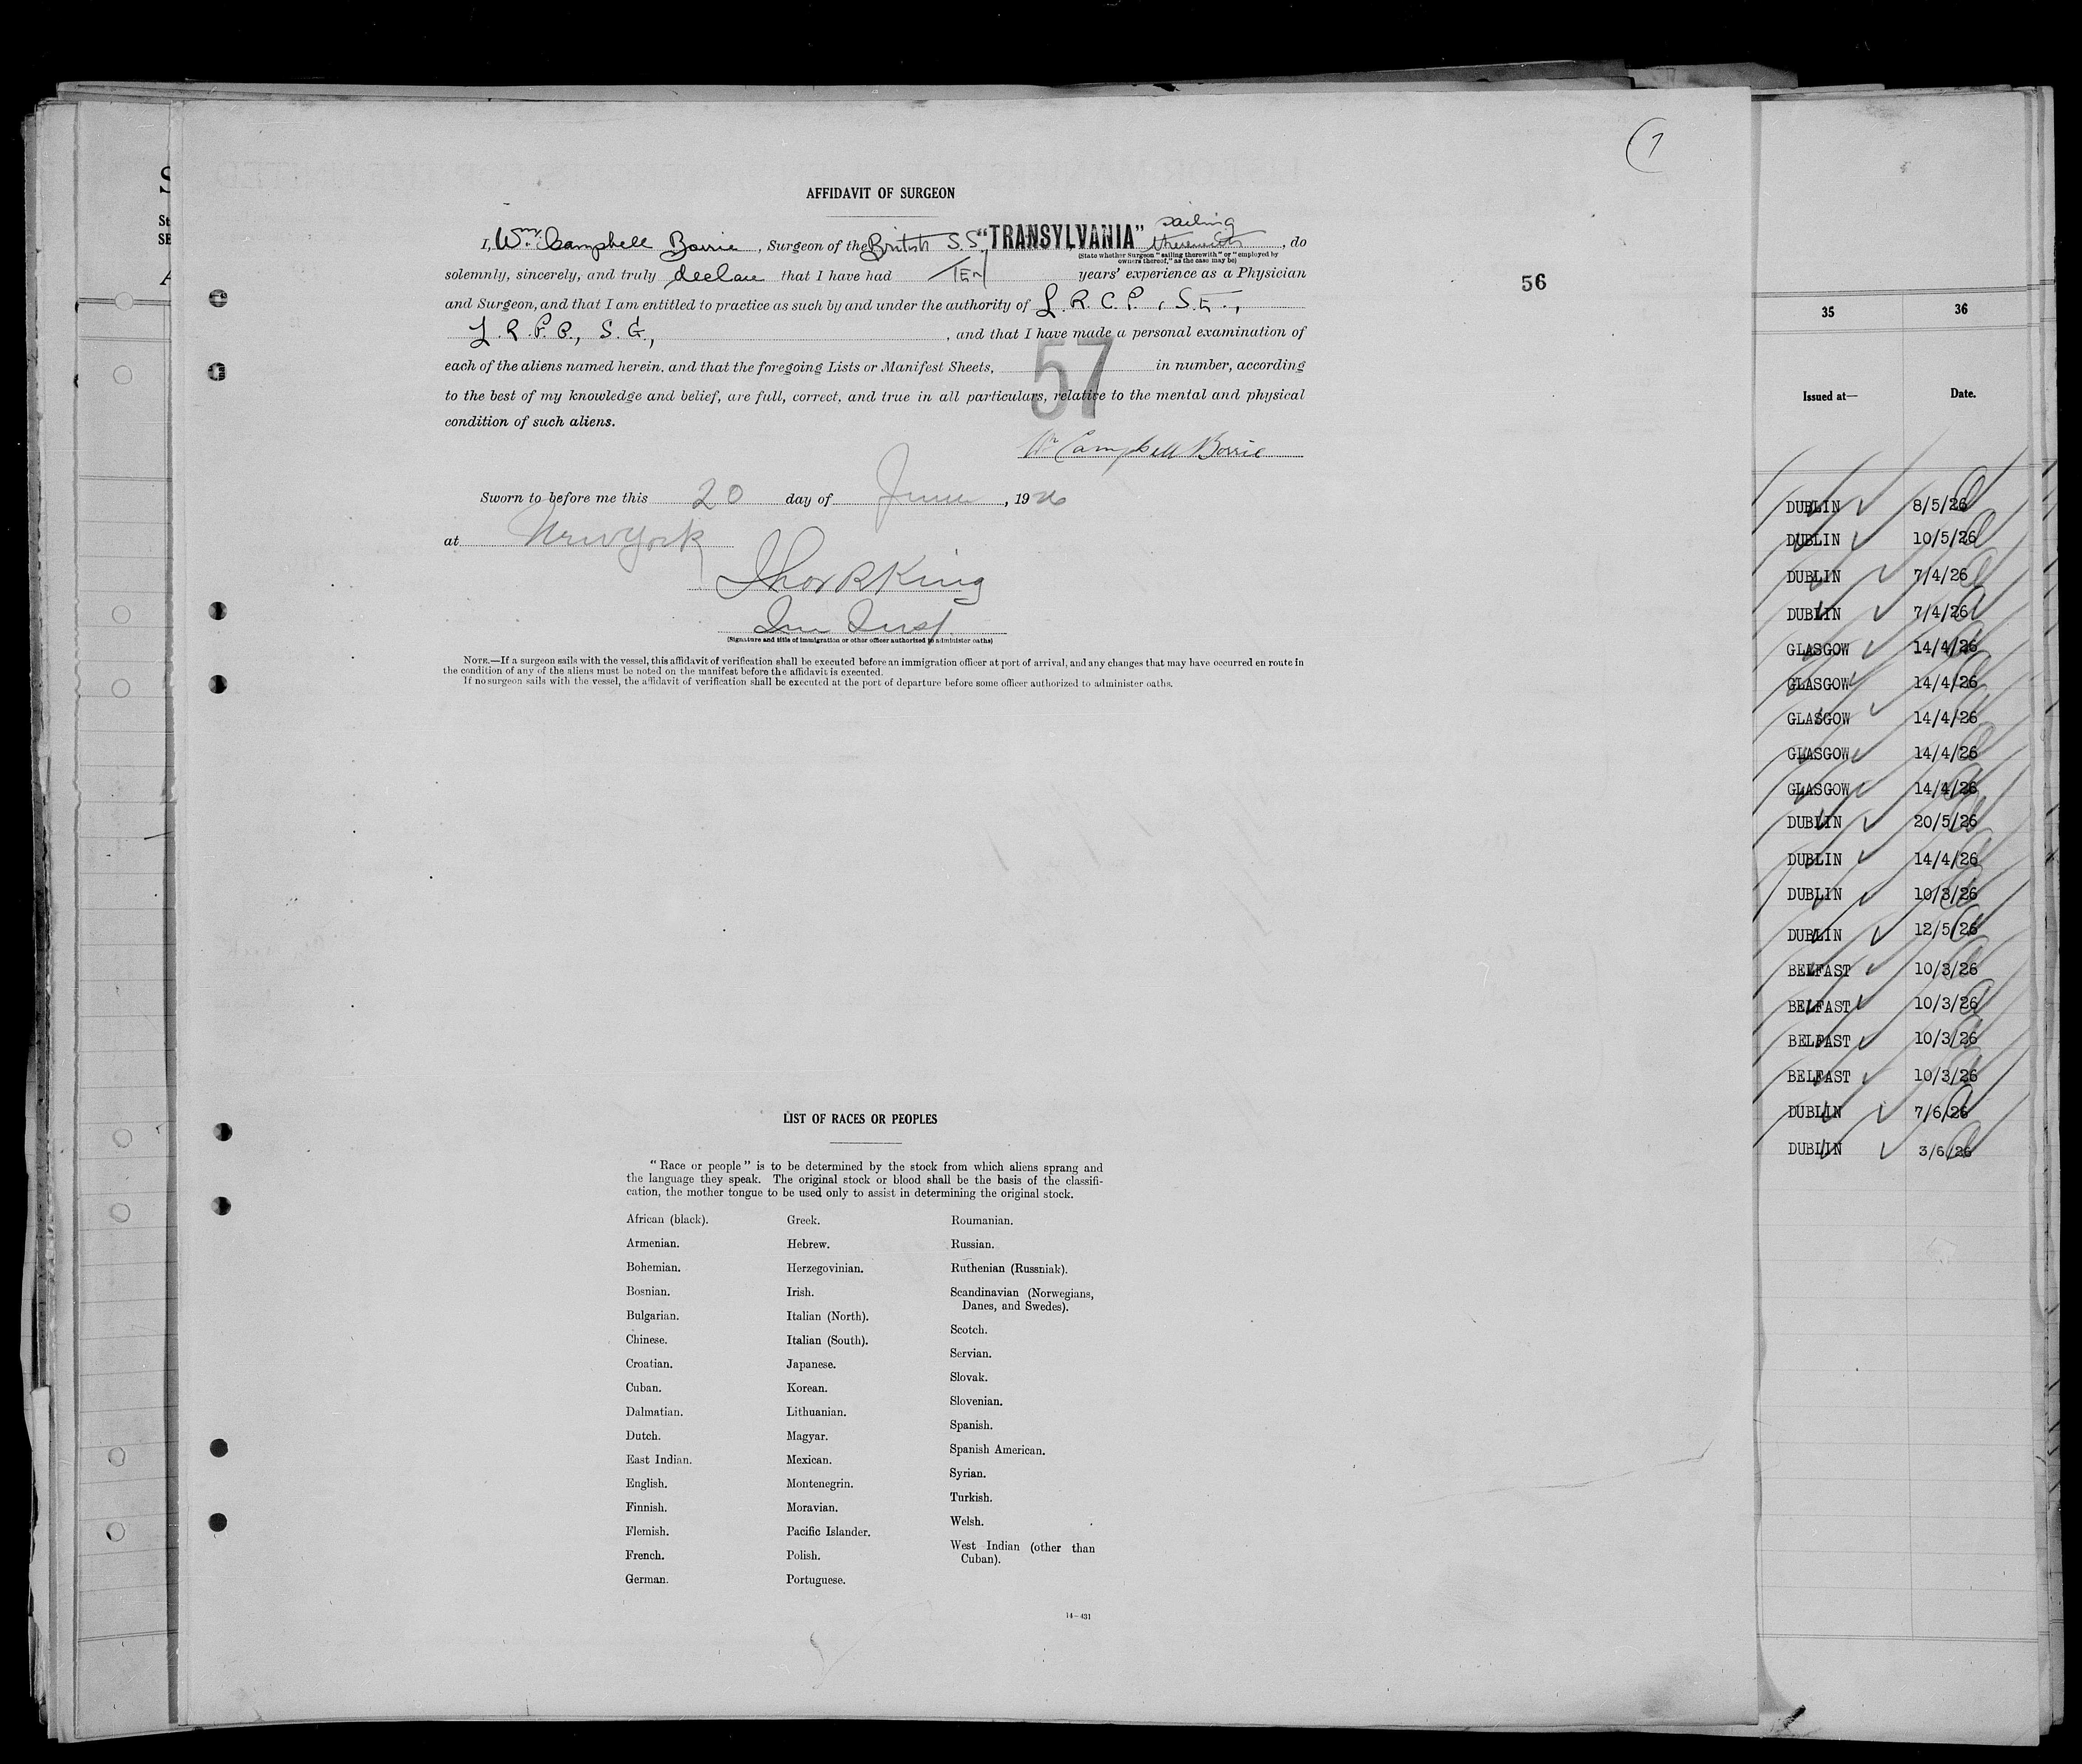 S
St
SE
A
1
AFFIDAVIT OF SURGEON
I, Wm. Campbell Borrie, Surgeon of the British S.S. "TRANSYLVANIA" sailing therewith, do
(State whether Surgeon "sailing therewith" or "employed by owners thereof," as the case may be)
solemnly, sincerely, and truly declare that I have had TEN years' experience as a Physician
and Surgeon, and that I am entitled to practice as such by and under the authority of L. R. C. P., S. E.,
L. R. F. P., S. G., and that I have made a personal examination of
each of the aliens named herein, and that the foregoing Lists or Manifest Sheets, 57 in number, according
to the best of my knowledge and belief, are full, correct, and true in all particulars, relative to the mental and physical
condition of such aliens.
Wm Campbell Borrie
Sworn to before me this 20 day of June, 1926
at New York
R King
Imm Insp.
(Signature and title of immigration or other officer authorized to administer oaths)
NOTE.—If a surgeon sails with the vessel, this affidavit of verification shall be executed before an immigration officer at port of arrival, and any changes that may have occurred en route in
the condition of any of the aliens must be noted on the manifest before the affidavit is executed.
If no surgeon sails with the vessel, the affidavit of verification shall be executed at the port of departure before some officer authorized to administer oaths.
56
LIST OF RACES OR PEOPLES
"Race or people" is to be determined by the stock from which aliens sprang and
the language they speak. The original stock or blood shall be the basis of the classifi-
cation, the mother tongue to be used only to assist in determining the original stock.
African (black).
Armenian.
Bohemian.
Bosnian.
Bulgarian.
Chinese.
Croatian.
Cuban.
Dalmatian.
Dutch.
East Indian.
English.
Finnish.
Flemish.
French.
German.
Greek.
Hebrew.
Herzegovinian.
Irish.
Italian (North).
Italian (South).
Japanese.
Korean.
Lithuanian.
Magyar.
Mexican.
Montenegrin.
Moravian.
Pacific Islander.
Polish.
Portuguese.
Roumanian.
Russian.
Ruthenian (Russniak).
Scandinavian (Norwegians,
Danes, and Swedes).
Scotch.
Servian.
Slovak.
Slovenian.
Spanish.
Spanish American.
Syrian.
Turkish.
Welsh.
West Indian (other than
Cuban).
14—431
35 36
Issued at— Date.
DUBLIN 8/5/26
DUBLIN 10/5/26
DUBLIN 7/4/26
DUBLIN 7/4/26
GLASGOW 14/4/26
GLASGOW 14/4/26
GLASGOW 14/4/26
GLASGOW 14/4/26
GLASGOW 14/4/26
DUBLIN 20/5/26
DUBLIN 14/4/26
DUBLIN 10/3/26
DUBLIN 12/5/26
BELFAST 10/3/26
BELFAST 10/3/26
BELFAST 10/3/26
BELFAST 10/3/26
DUBLIN 7/6/26
DUBLIN 3/6/26